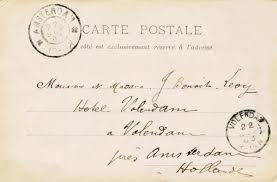 AMSTERDAM
CARTE POSTALE
Ce côté est exclusivement réservé à l'adresse
Monsieur et Madame J. Benoit-Levy
Hotel Volendam
à Volendam
VOLENDAM
22
près Amsterdam
Hollande